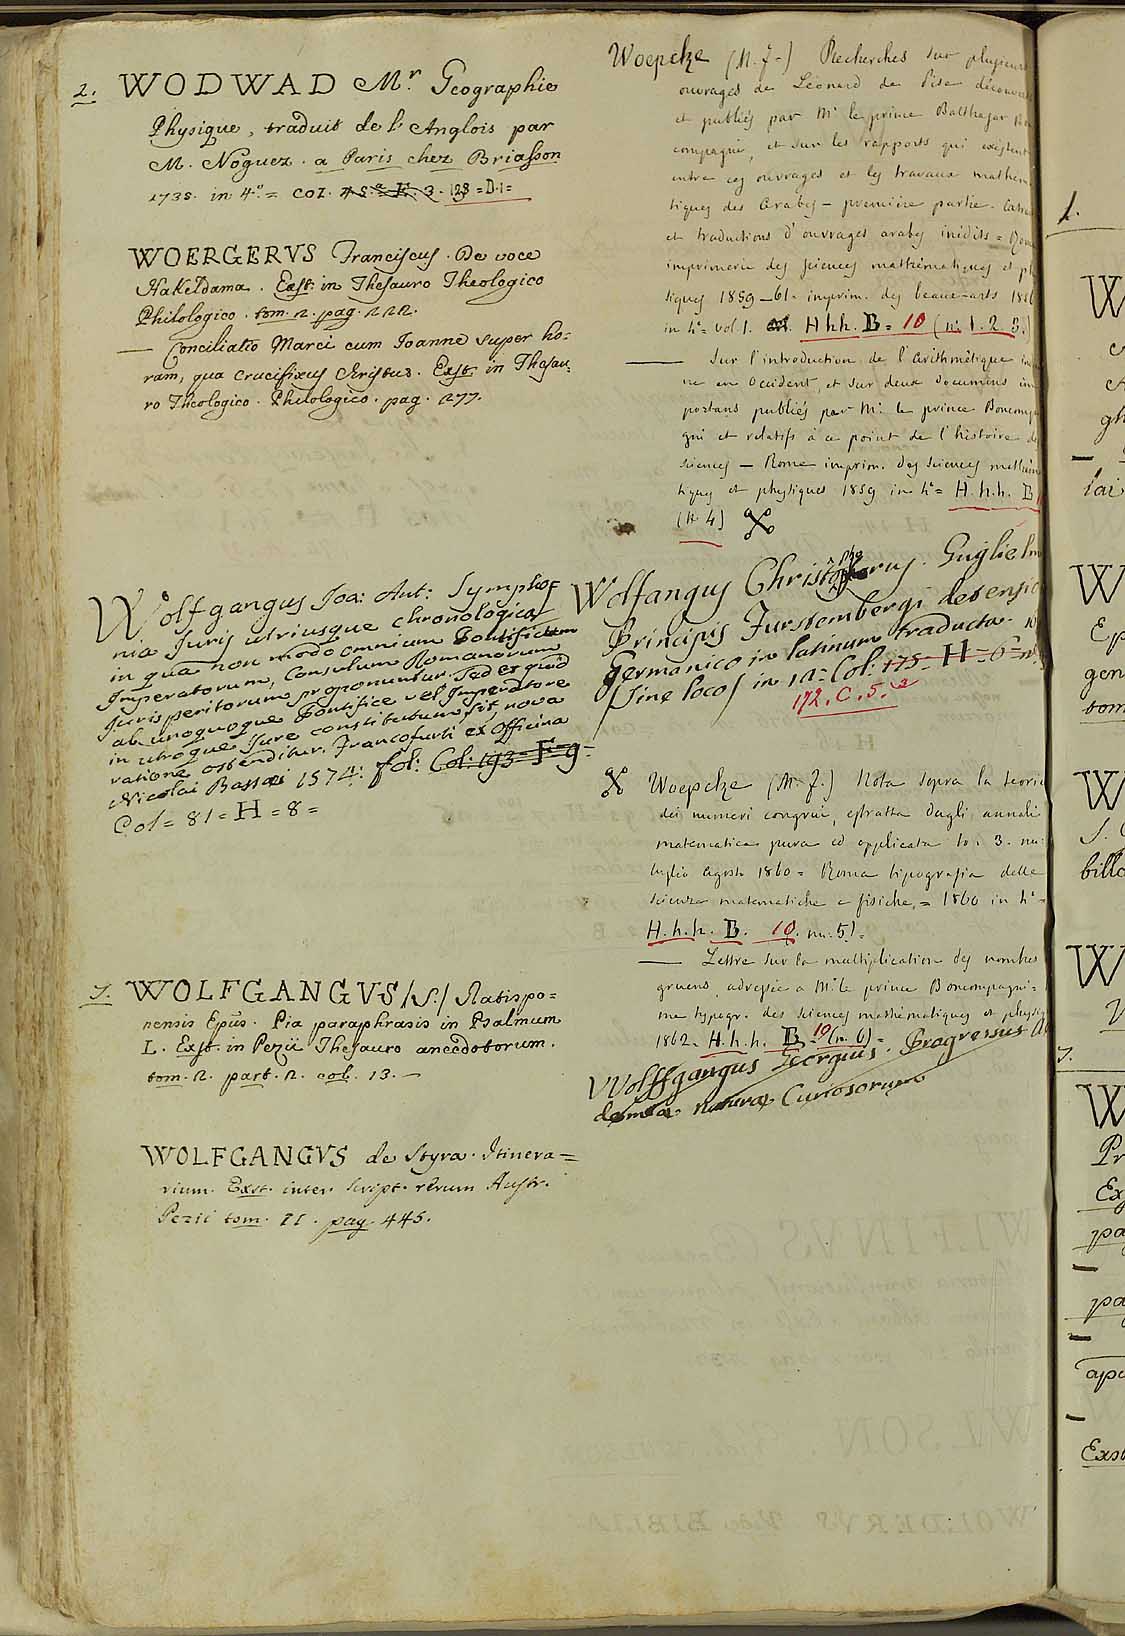 2. WODWAD Mr. Geographie
Physique, traduit de l'Anglois par
M. Noguez. a Paris chez Briasson
1735. in 4.º = col. 128 = D. 1 =
WOERGERVS Franciscus. De voce
Hakeldama. Exst. in Thesauro Theologico
Philologico. tom. 2. pag. 222.
— Conciliatio Marci cum Joanne super ho=
ram, qua crucifixus Christus. Exst. in Thesau=
ro Theologico. Philologico. pag. 277.
Wolfgangus Joa: Ant: Sympho
nia Juris utriusque chronologica
in qua non modo omnium Pontificum
Imperatorum, Consulum Romanorum
Jurisperitorum proponuntur. Sed et quid
ab unoquoque Pontifice vel Imperatore
in utroque Jure constitutum sit nova
ratione ostenditur. Francofurti ex Officina
Nicolai Bassæi 1574: fol: Col: 193 = F = 9 =
Col = 81 = H = 8 =
S. WOLFGANGVS /S./ Ratispo=
nensis Epũs. Pia paraphrasis in Psalmum
L. Exst. in Pezii Thesauro anecdotorum.
tom. 2. part. 2. col. 13. —
WOLFGANGVS de Styra. Itinera=
rium. Exst. inter script. rerum Austr.
Pezii tom. II. pag. 445.
Woepcke (M. F.) Recherches sur plusieurs
ouvrages de Léonard de Pise
et publiés par Mr. le prince Balthasar
compagni, et sur les rapports qui existent
entre ces ouvrages et les travaux
tiques des Arabes — première partie.
et traductions d'ouvrages arabes inédits =
imprimerie des sciences mathématiques et
tiques 1859–61 = imprim. des beaux-arts
in 4º = vol 1. H hh. B = 10 (n. 1. 2. 3.)
— Sur l'introduction de l'Arithmétique
ne en Occident, et sur deux documens
portans publiés par Mr. le prince
gni et relatifs à ce point de l'histoire
sciences — Rome imprim. des sciences
tiques et physiques 1859 in 4º = H. h. h. B
(n. 4)
Wolfangus Christophorus. Guglielm
Principis Furstembergi defensio
Germanico in latinum traducta.
/sine loco/ in 12 = Col: 175 = H = 6 =
172. C. 5.
Woepcke (M. F.) Nota sopra la teoria
dei numeri congrui, estratta dagli annali
matematica pura ed applicata to: 3.
luglio Agosto 1860 = Roma tipografia delle
scienze matematiche e fisiche, = 1860 in 4º =
H. h. h. B. 10. nu. 5) =
— Lettre sur la multiplication des nombres
gruens, adressée a Mr. le prince Boncompagni =
me typogr. des sciences mathématiques et
1862. H. h. h. B = 10 (n. 6) =
Wolffgangus Georgius. Progressus
demia naturæ Curiosorum
1.
W
gh
lai
W
Ep
gen
tom
W
S.
W
W
Pr
Ex
pa
pa
Exst